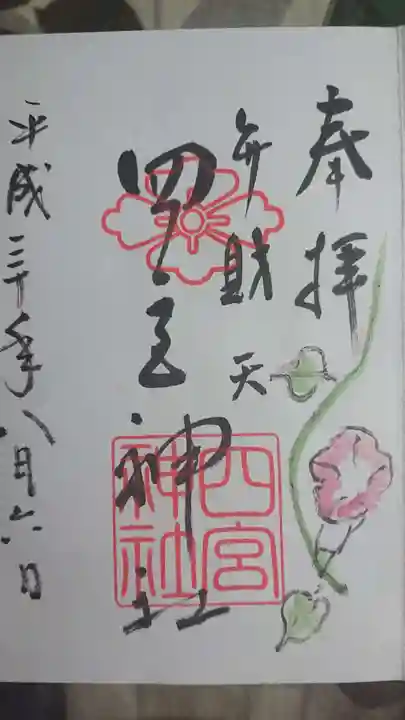 奉拝
弁財天
四宮神社
四宮神社
平成三十年八月六日